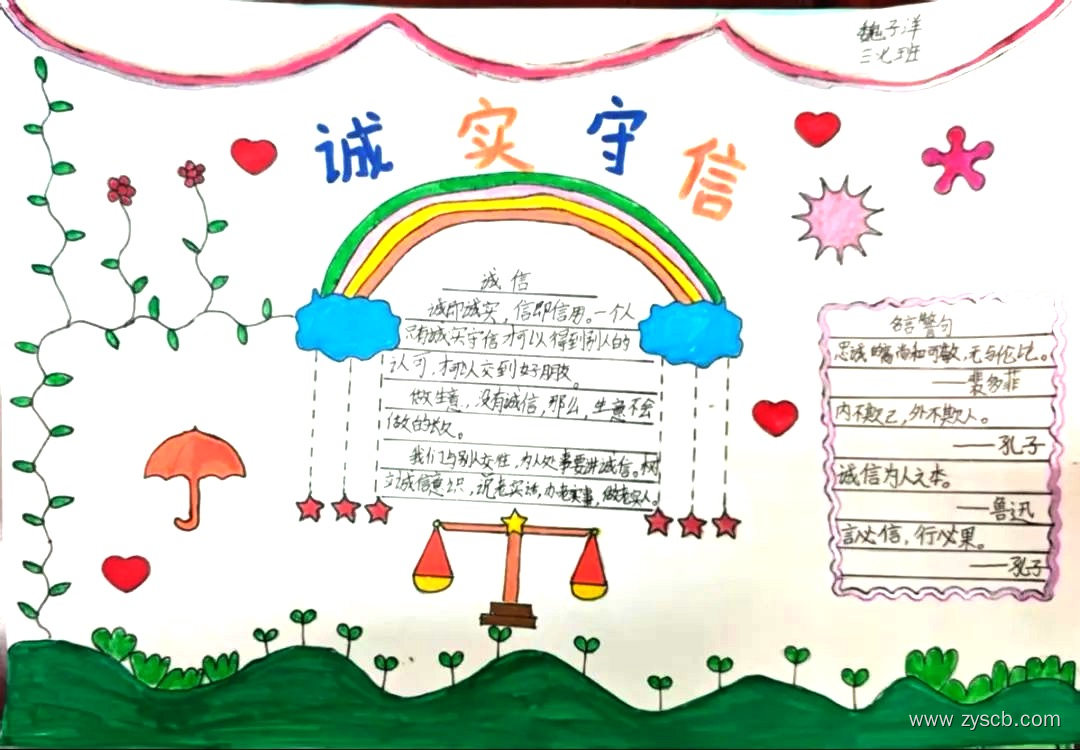 魏子洋
三七班
诚实守信
诚信
诚即诚实，信即信用。一个人
只有诚实守信才可以得到别人的
认可，才可以交到好朋友。
做生意，没有诚信，那么，生意不会
做的长久。
我们与别人交往，为人处事要讲诚信。树
立诚信意识，说老实话，办老实事，做老实人。
名言警句
忠诚的高尚和可敬，无与伦比。
——裴多菲
内不欺己，外不欺人。
——孔子
诚信为人之本。
——鲁迅
言必信，行必果。
——孔子
www.zyscb.com